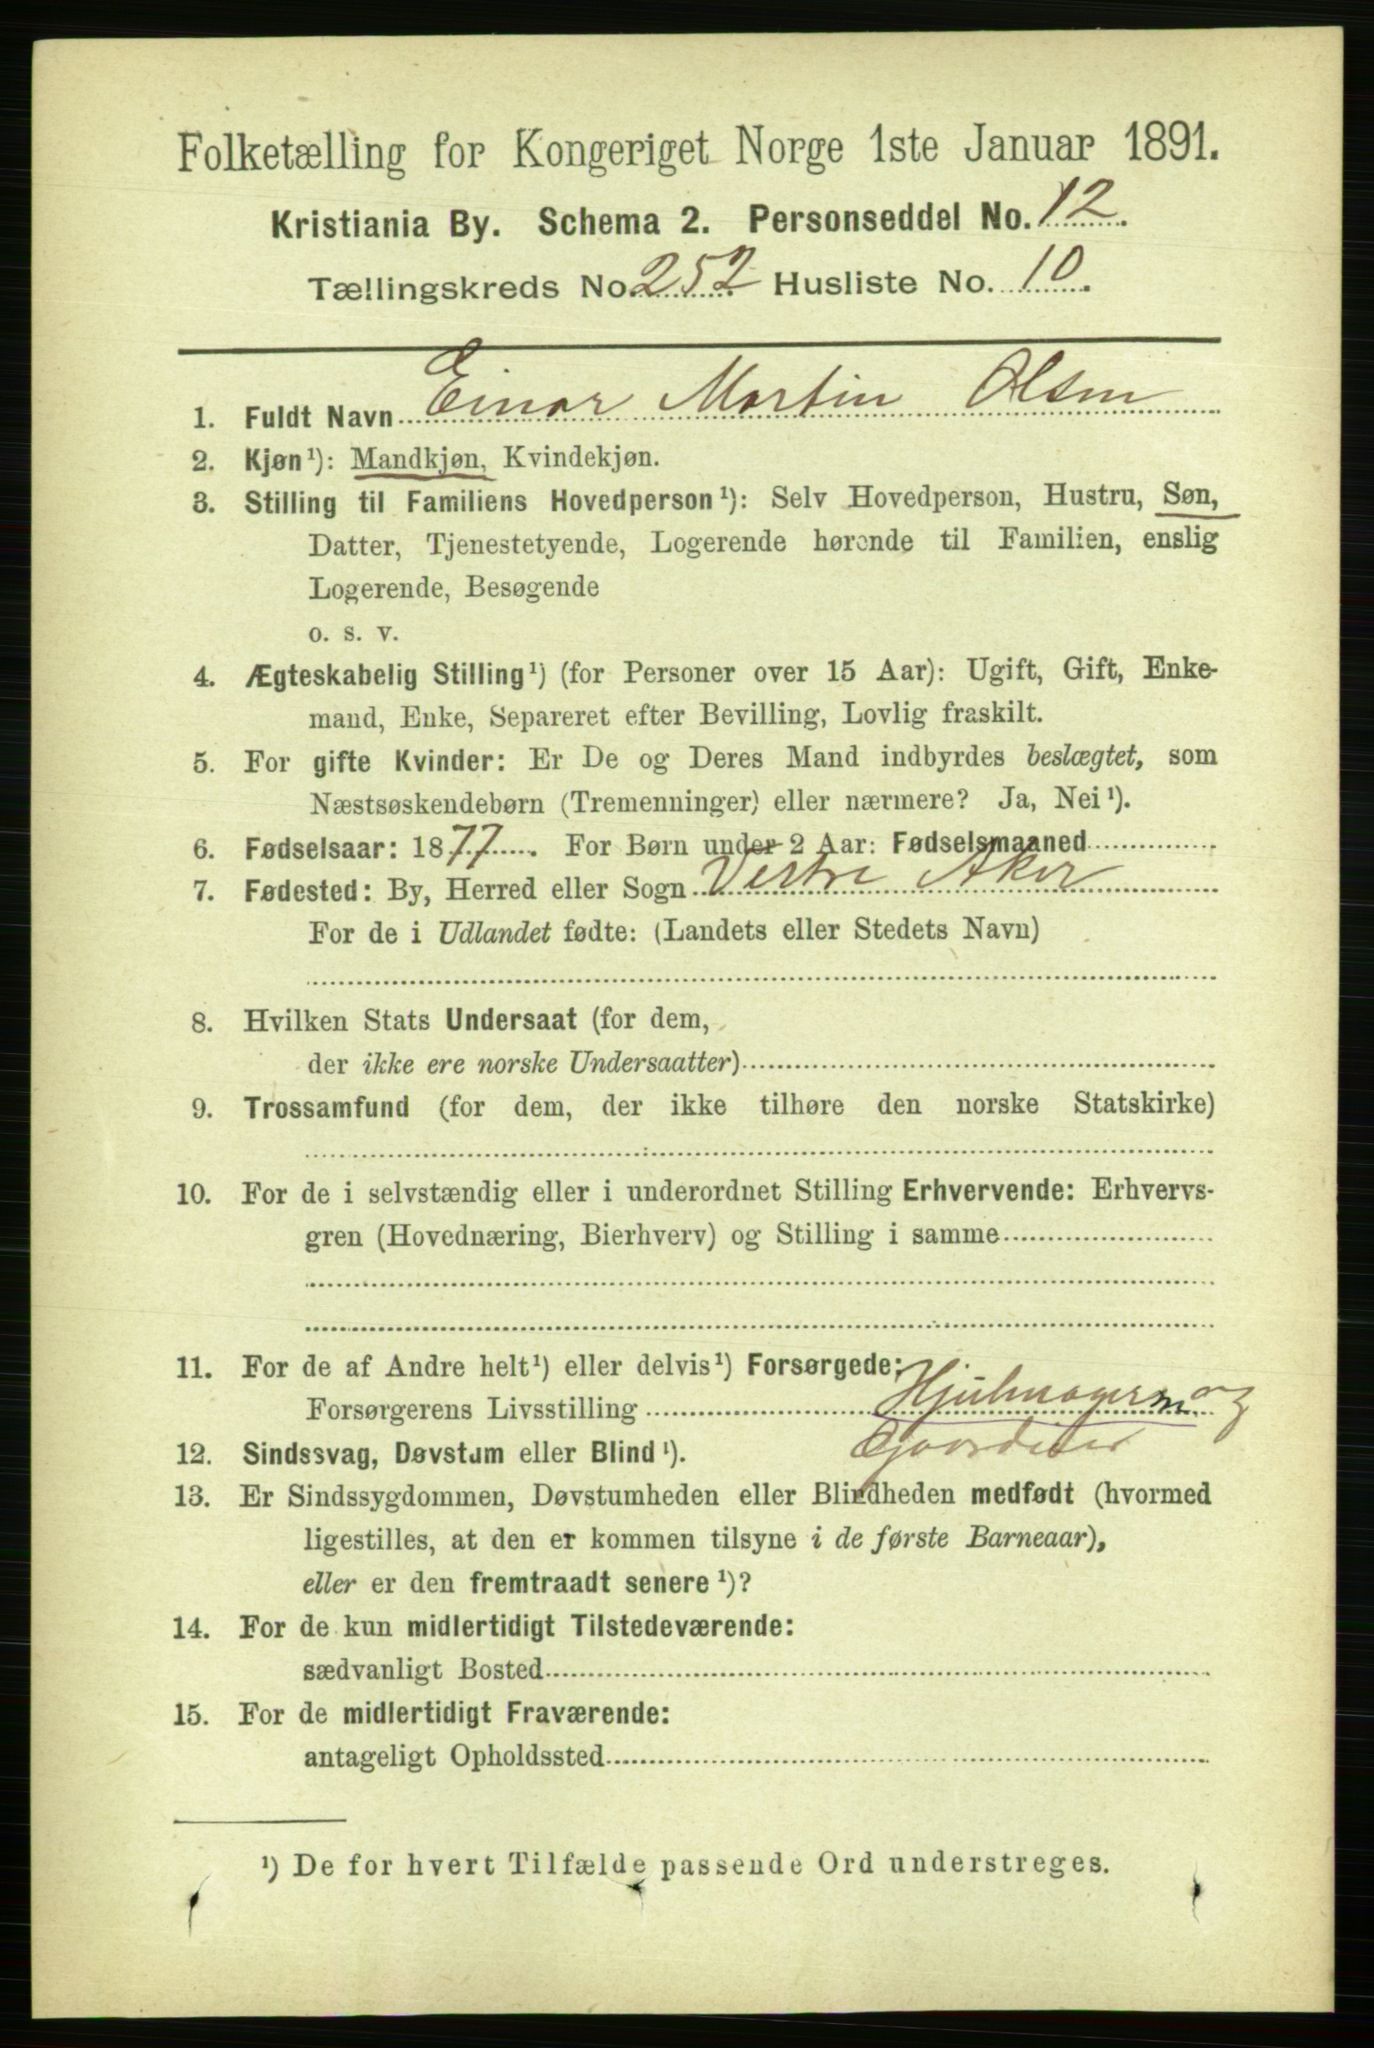 Folketælling for Kongeriget Norge 1ste Januar 1891.
Kristiania By. Schema 2. Personseddel No. 12.
Tællingskreds No. 252 Husliste No. 10.
1. Fuldt Navn Einar Martin Olsen
2. Kjøn¹): Mandkjøn, Kvindekjøn.
3. Stilling til Familiens Hovedperson¹): Selv Hovedperson, Hustru, Søn,
Datter, Tjenestetyende, Logerende hørende til Familien, enslig
Logerende, Besøgende
o. s. v.
4. Ægteskabelig Stilling¹) (for Personer over 15 Aar): Ugift, Gift, Enke-
mand, Enke, Separeret efter Bevilling, Lovlig fraskilt.
5. For gifte Kvinder: Er De og Deres Mand indbyrdes beslægtet, som
Næstsøskendebørn (Tremenninger) eller nærmere? Ja, Nei¹).
6. Fødselsaar: 1877. For Børn under 2 Aar: Fødselsmaaned
7. Fødested: By, Herred eller Sogn Vestre Aker
For de i Udlandet fødte: (Landets eller Stedets Navn)
8. Hvilken Stats Undersaat (for dem,
der ikke ere norske Undersaatter)
9. Trossamfund (for dem, der ikke tilhøre den norske Statskirke)
10. For de i selvstændig eller i underordnet Stilling Erhvervende: Erhvervs-
gren (Hovednæring, Bierhverv) og Stilling i samme
11. For de af Andre helt¹) eller delvis¹) Forsørgede:
Forsørgerens Livsstilling Hjulmagerm og
Gaardeier
12. Sindssvag, Døvstum eller Blind¹).
13. Er Sindssygdommen, Døvstumheden eller Blindheden medfødt (hvormed
ligestilles, at den er kommen tilsyne i de første Barneaar),
eller er den fremtraadt senere¹)?
14. For de kun midlertidigt Tilstedeværende:
sædvanligt Bosted
15. For de midlertidigt Fraværende:
antageligt Opholdssted
¹) De for hvert Tilfælde passende Ord understreges.